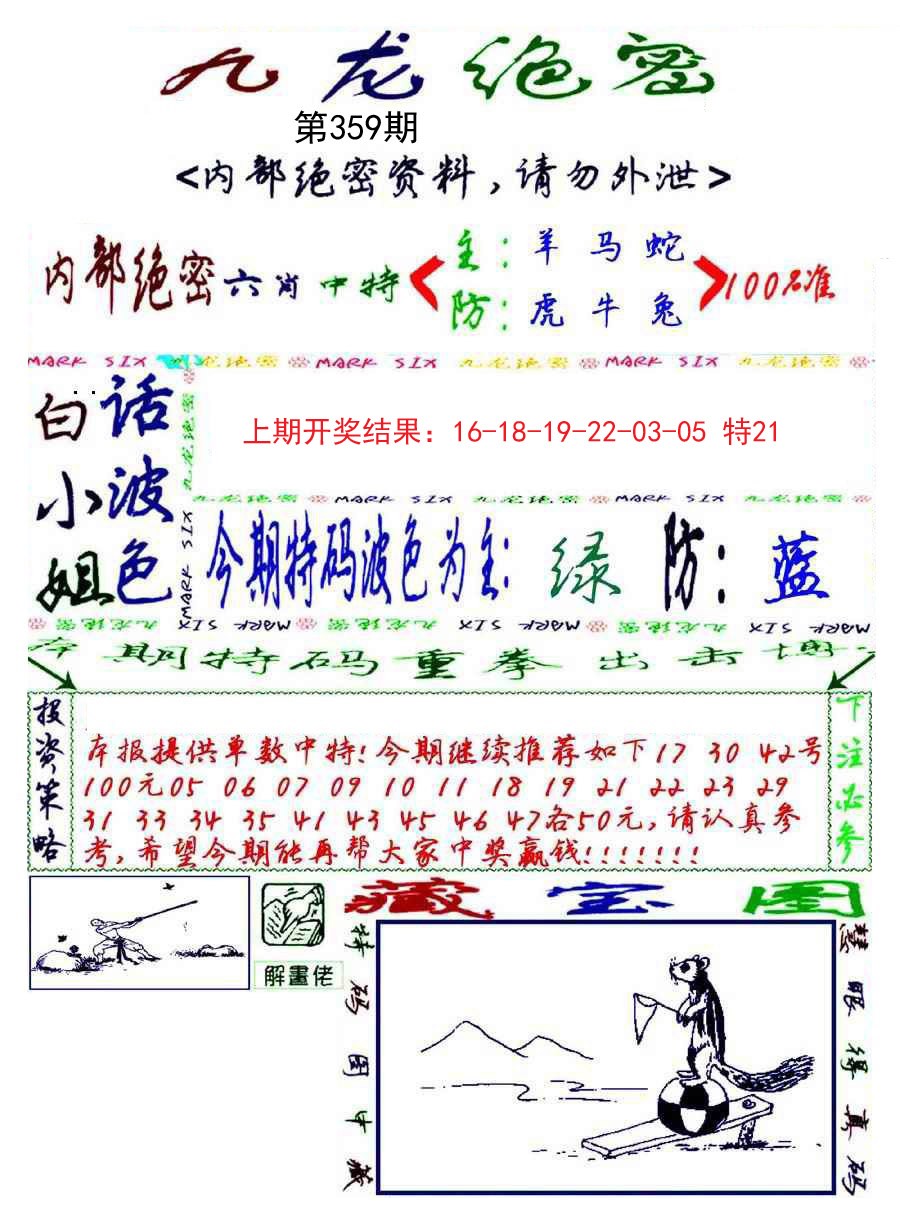 九龙绝密
第359期
<内部绝密资料,请勿外泄>
内部绝密六肖中特
主:羊马蛇
防:虎牛兔
100%准
MARK SIX 九龙绝密 MARK SIX 九龙绝密 MARK SIX 九龙绝密
白话
小波
姐色
九龙绝密
MARK SIX
上期开奖结果：16-18-19-22-03-05 特21
九龙绝密 MARK SIX 九龙绝密 MARK SIX 九龙绝密
今期特码波色为主:绿 防:蓝
九龙绝密 MARK SIX 九龙绝密 MARK SIX 九龙绝密 MARK SIX
本期特码重拳出击博
投资策略
本报提供单数中特!今期继续推荐如下17 30 42号
100元05 06 07 09 10 11 18 19 21 22 23 29
31 33 34 35 41 43 45 46 47各50元,请认真参
考,希望今期能再帮大家中奖赢钱!!!!!!!
下注必参
解畫佬
藏宝图
特码图中藏
慧眼得真码